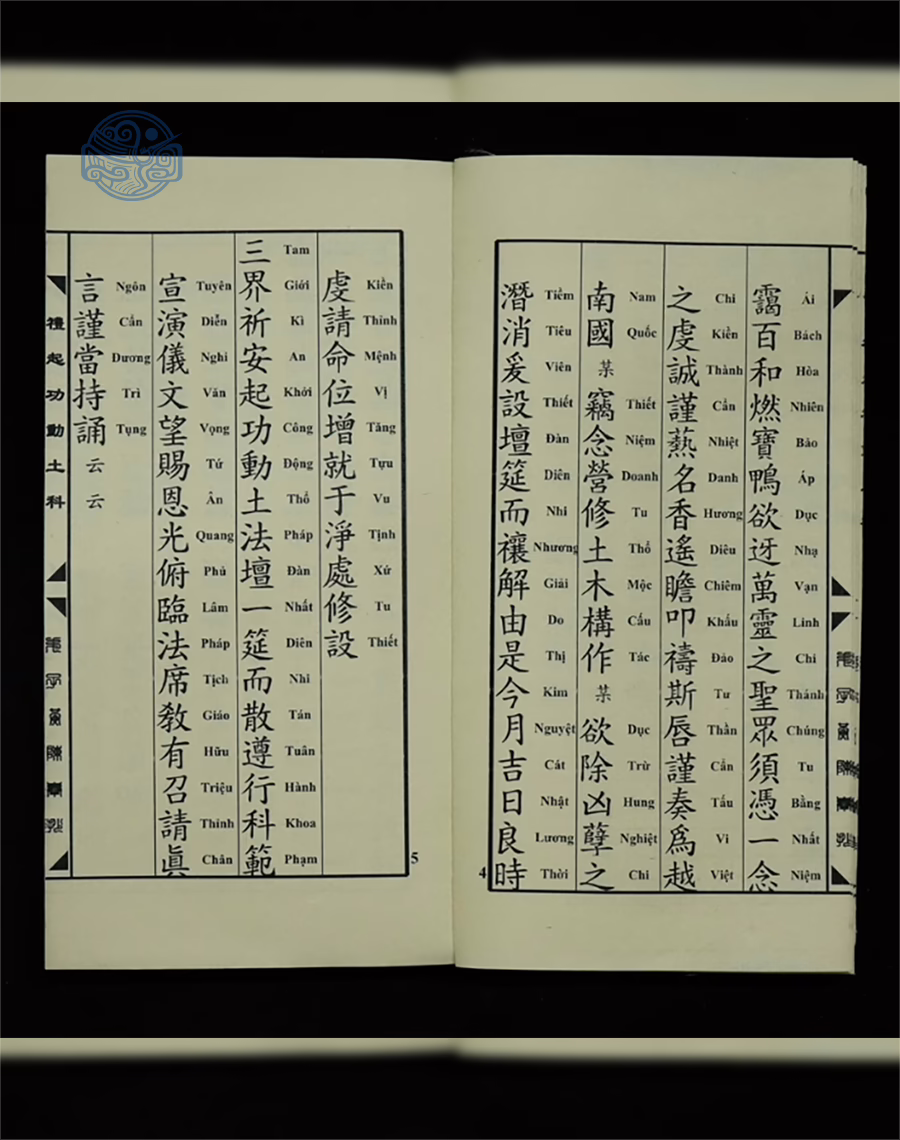 靄百和燃寶鴨欲迓萬靈之聖眾須憑一念
Ái Bách Hòa Nhiên Bảo Áp Dục Nhạ Vạn Linh Chi Thánh Chúng Tu Bằng Nhất Niệm
之虔誠謹爇名香遙瞻叩禱斯唇謹奏爲越
Chi Kiền Thành Cẩn Nhiệt Danh Hương Diêu Chiêm Khấu Đảo Tư Thần Cẩn Tấu Vi Việt
南國某竊念營修土木構作某欲除凶孽之
Nam Quốc Thiết Niệm Doanh Tu Thổ Mộc Cấu Tác Dục Trừ Hung Nghiệt Chi
潛消爰設壇筵而禳解由是今月吉日良時
Tiềm Tiêu Viên Thiết Đàn Diên Nhi Nhương Giải Do Thị Kim Nguyệt Cát Nhật Lương Thời
4
虔請命位增就于淨處修設
Kiền Thỉnh Mệnh Vị Tăng Tựu Vu Tịnh Xử Tu Thiết
三界祈安起功動土法壇一筵而散遵行科範
Tam Giới Kì An Khởi Công Động Thổ Pháp Đàn Nhất Diên Nhi Tán Tuân Hành Khoa Phạm
宣演儀文望賜恩光俯臨法席敎有召請眞
Tuyên Diễn Nghi Văn Vọng Tứ Ân Quang Phủ Lâm Pháp Tịch Giáo Hữu Triệu Thỉnh Chân
言謹當持誦云云
Ngôn Cẩn Dương Trì Tụng
5
禮起功動土科